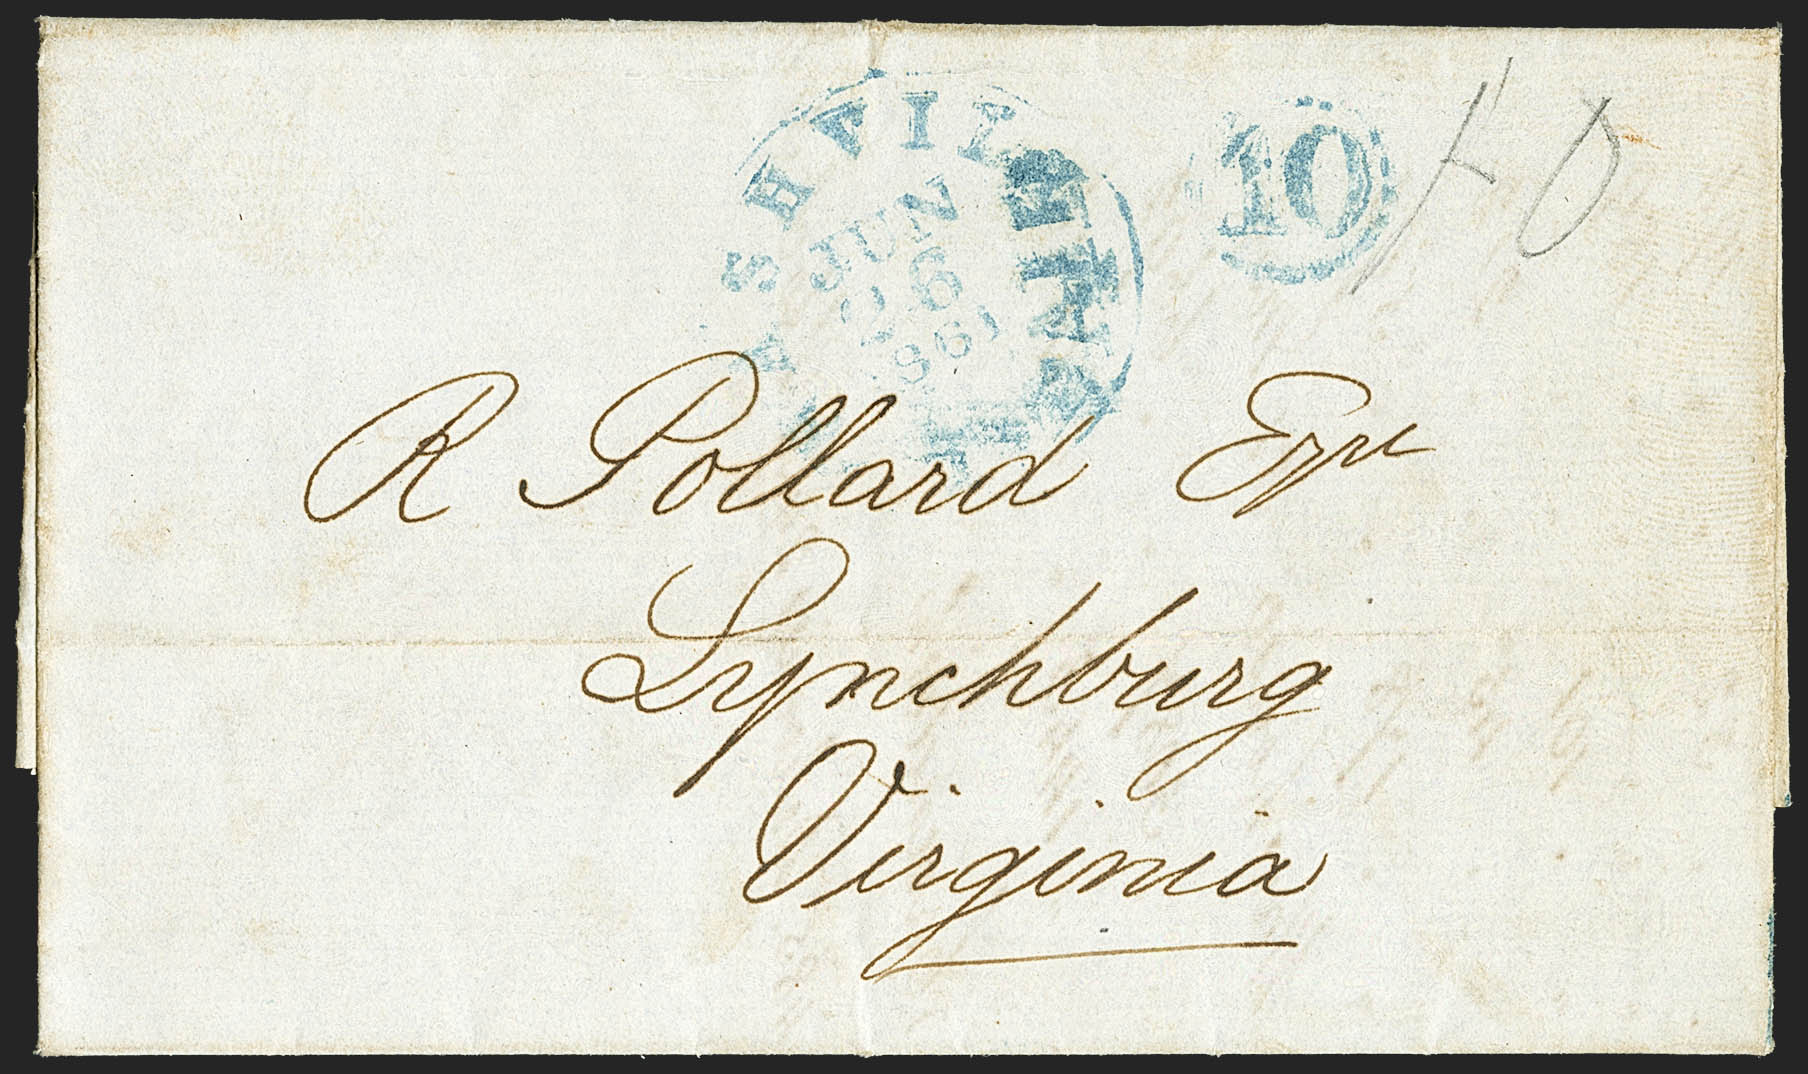 NASHVILLE
JUN
26
1861
PAID
10
10
R Pollard Esqr
Lynchburg
Virginia